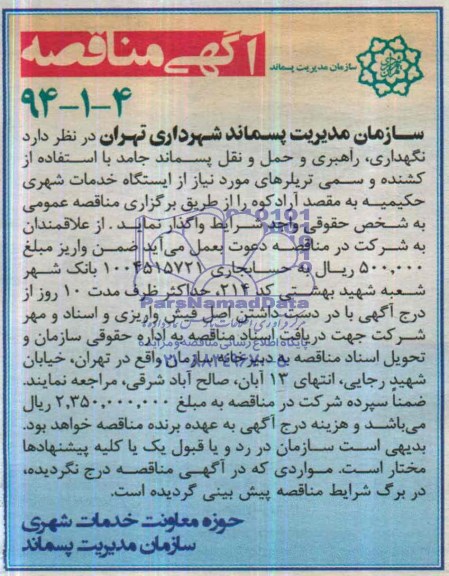 آگهی مناقصه
سازمان مدیریت پسماند
۹۴-۱-۴
سازمان مدیریت پسماند شهرداری تهران در نظر دارد
نگهداری، راهبری و حمل و نقل پسماند جامد با استفاده از
کشنده و سمی تریلرهای مورد نیاز از ایستگاه خدمات شهری
حکیمیه به مقصد آرادکوه را از طریق برگزاری مناقصه عمومی
به شخص حقوقی واجد شرایط واگذار نماید. از علاقمندان
به شرکت در مناقصه دعوت بعمل می‌آید ضمن واریز مبلغ
۵۰۰,۰۰۰ ریال به حسابجاری ۱۰۰۴۵۱۵۷۲۱ بانک شهر
شعبه شهید بهشتی کد ۲۱۴، حداکثر ظرف مدت ۱۰ روز از
درج آگهی با در دست داشتن اصل فیش واریزی و اسناد و مهر
شرکت جهت دریافت اسناد مناقصه به اداره حقوقی سازمان و
تحویل اسناد مناقصه به دبیرخانه سازمان واقع در تهران، خیابان
شهید رجایی، انتهای ۱۳ آبان، صالح آباد شرقی، مراجعه نمایند.
ضمناً سپرده شرکت در مناقصه به مبلغ ۲,۳۵۰,۰۰۰,۰۰۰ ریال
می‌باشد و هزینه درج آگهی به عهده برنده مناقصه خواهد بود.
بدیهی است سازمان در رد و یا قبول یک یا کلیه پیشنهادها
مختار است. مواردی که در آگهی مناقصه درج نگردیده،
در برگ شرایط مناقصه پیش بینی گردیده است.
حوزه معاونت خدمات شهری
سازمان مدیریت پسماند
ParsNamadData